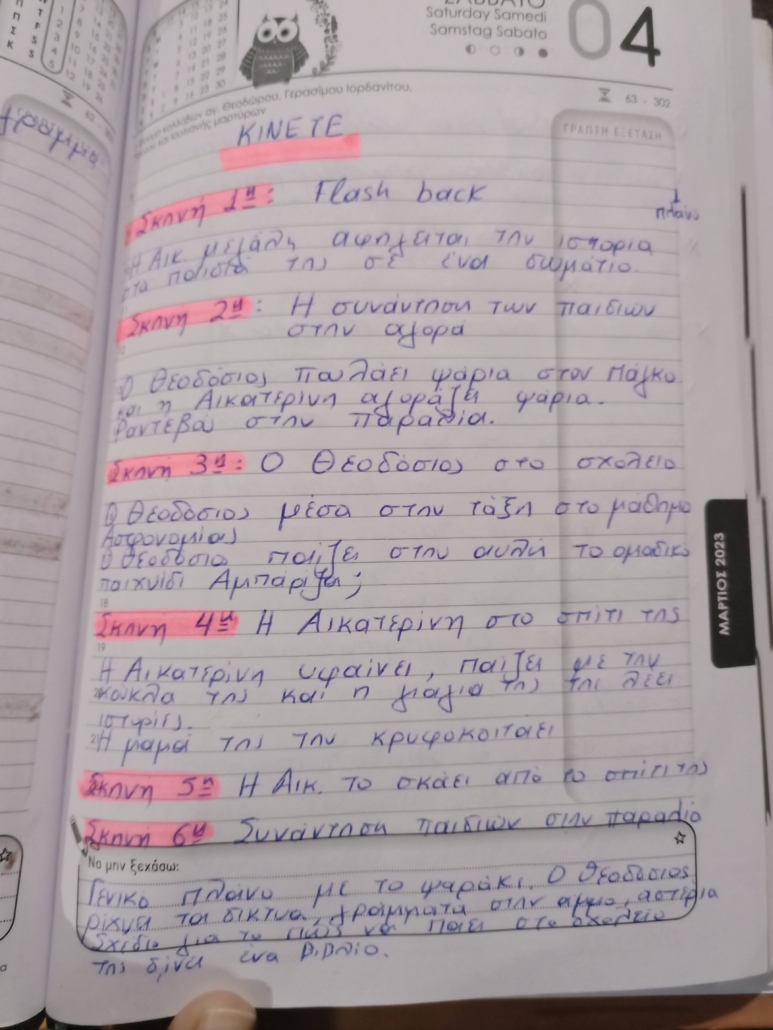 ΣΑΒΒΑΤΟ
Saturday Samedi
Samstag Sabato
04
63 - 302
Θεοδώρου, Γερασίμου Ιορδανίτου,
ΓΡΑΠΤΗ ΕΞΕΤΑΣΗ
ΚΙΝΕΤΕ
Σκηνή 1η: Flash back
1 πλάνο
Η Αικ μεγάλη αφηγειται την ιστορια
στα παιδιά της σε ένα δωμάτιο.
Σκηνή 2η: Η συνάντηση των παιδιων
στην αγορά
Ο Θεοδόσιος πουλάει ψάρια στον πάγκο
και η Αικατερίνη αγοράζει ψάρια.
Ραντεβού στην παραλία.
Σκηνή 3η: Ο Θεοδόσιος στο σχολειο
Ο Θεοδόσιος μέσα στην τάξη στο μάθημα
Αστρονομίας
Ο Θεοδόσιο παιζει στην αυλή το ομαδικο
παιχνίδι Αμπάριζα;
18
Σκηνή 4η Η Αικατερίνη στο σπίτι της
19
Η Αικατερίνη υφαίνει, παίζει με την
κούκλα της και η γιαγιά της της λέει
ιστορίες.
21 Η μαμά της την κρυφοκοιτάει
Σκηνή 5η Η Αικ. το σκάει από το σπίτι της
Σκηνή 6η Συνάντηση παιδιών στην παραλία
Να μην ξεχάσω:
Γενικό πλάνο με το ψαράκι. Ο Θεοδόσιος
ρίχνει τα δίκτυα, γράμματα στην αμμο, αστέρια
Σχέδιο για το πώς να πάει στο σχολείο
της δίνει ένα βιβλίο.
ΜΑΡΤΙΟΣ 2023
γράμμα
62